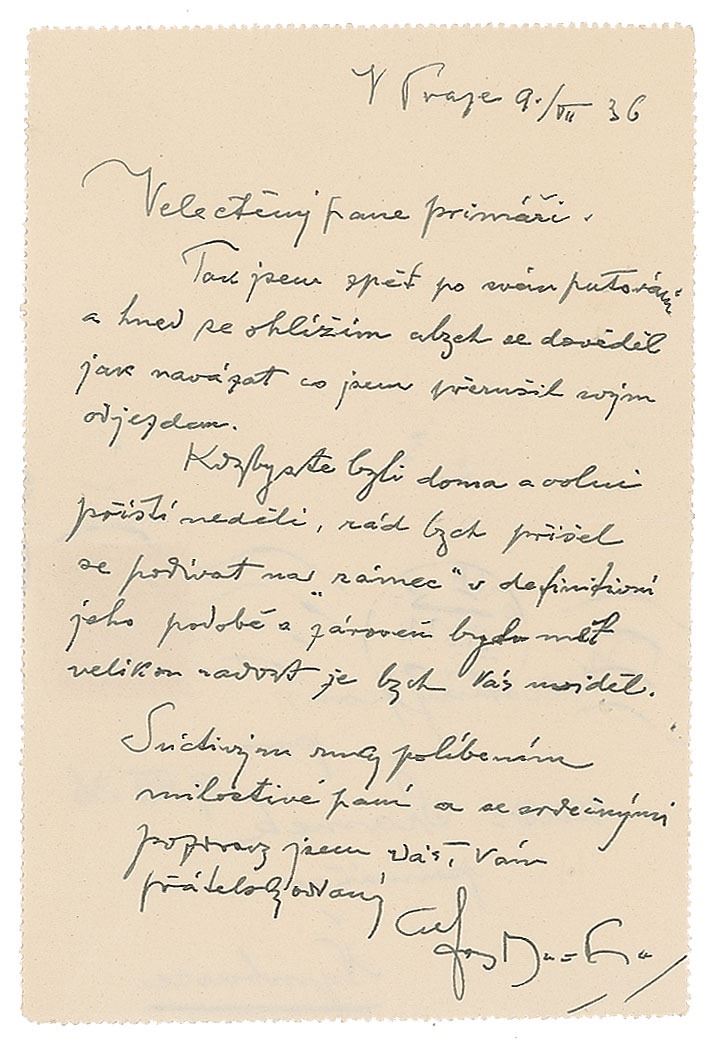 V Praze 9./VII 36
Velectěný pane primáři.
Tak jsem zpět po svém putování
a hned se ohlížím abych se dověděl
jak navázat co jsem přerušil svým
odjezdem.
Kdybyste byli doma a volni
příští neděli, rád bych přišel
se podívat na „rámec" v definitivní
jeho podobě a zároveň bych měl
velikou radost že bych Vás uviděl.
S uctivým ruky políbením
milostivé paní a se srdečnými
pozdravy jsem Váš, Vám
přátelsky oddaný